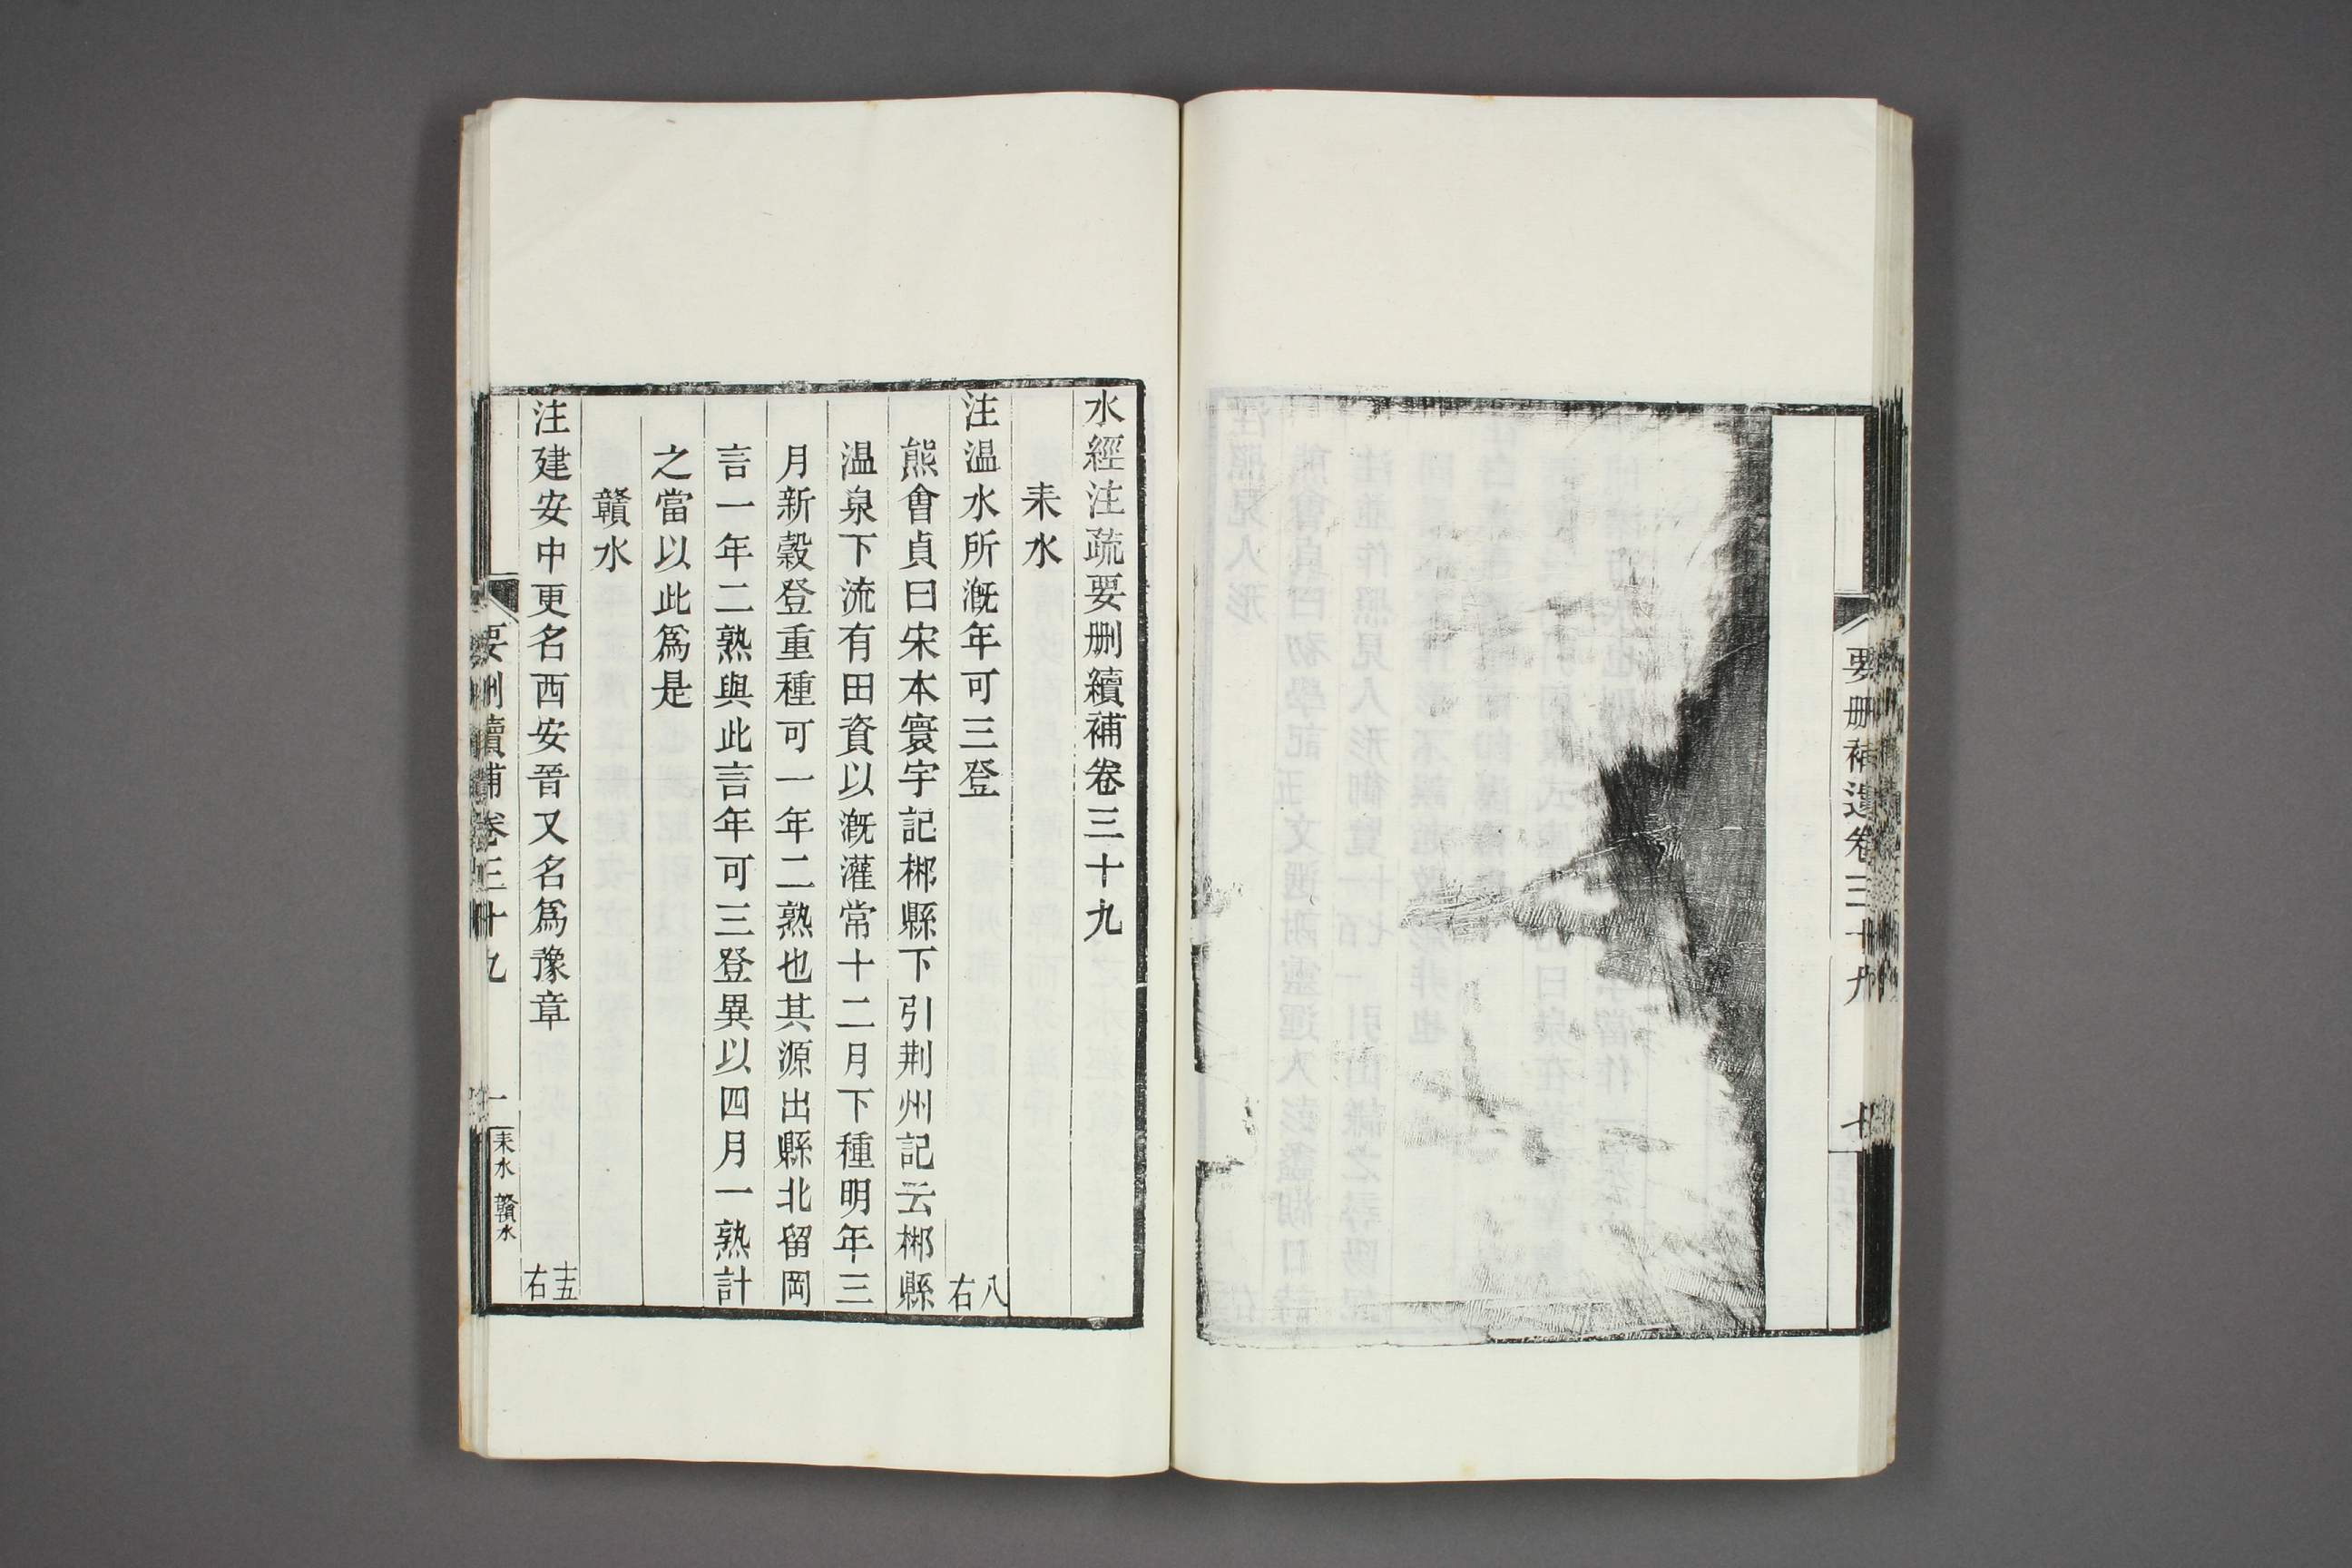 要刪補遺卷三十九
七
水經注疏要刪續補卷三十九
耒水
注温水所漑年可三登 八右
熊會貞曰宋本寰宇記郴縣下引荆州記云郴縣
温泉下流有田資以漑灌常十二月下種明年三
月新穀登重種可一年二熟也其源出縣北留岡
言一年二熟與此言年可三登異以四月一熟計
之當以此爲是
贛水
注建安中更名西安晉又名爲豫章 十五右
要刪續補卷三十九
一
耒水 贛水